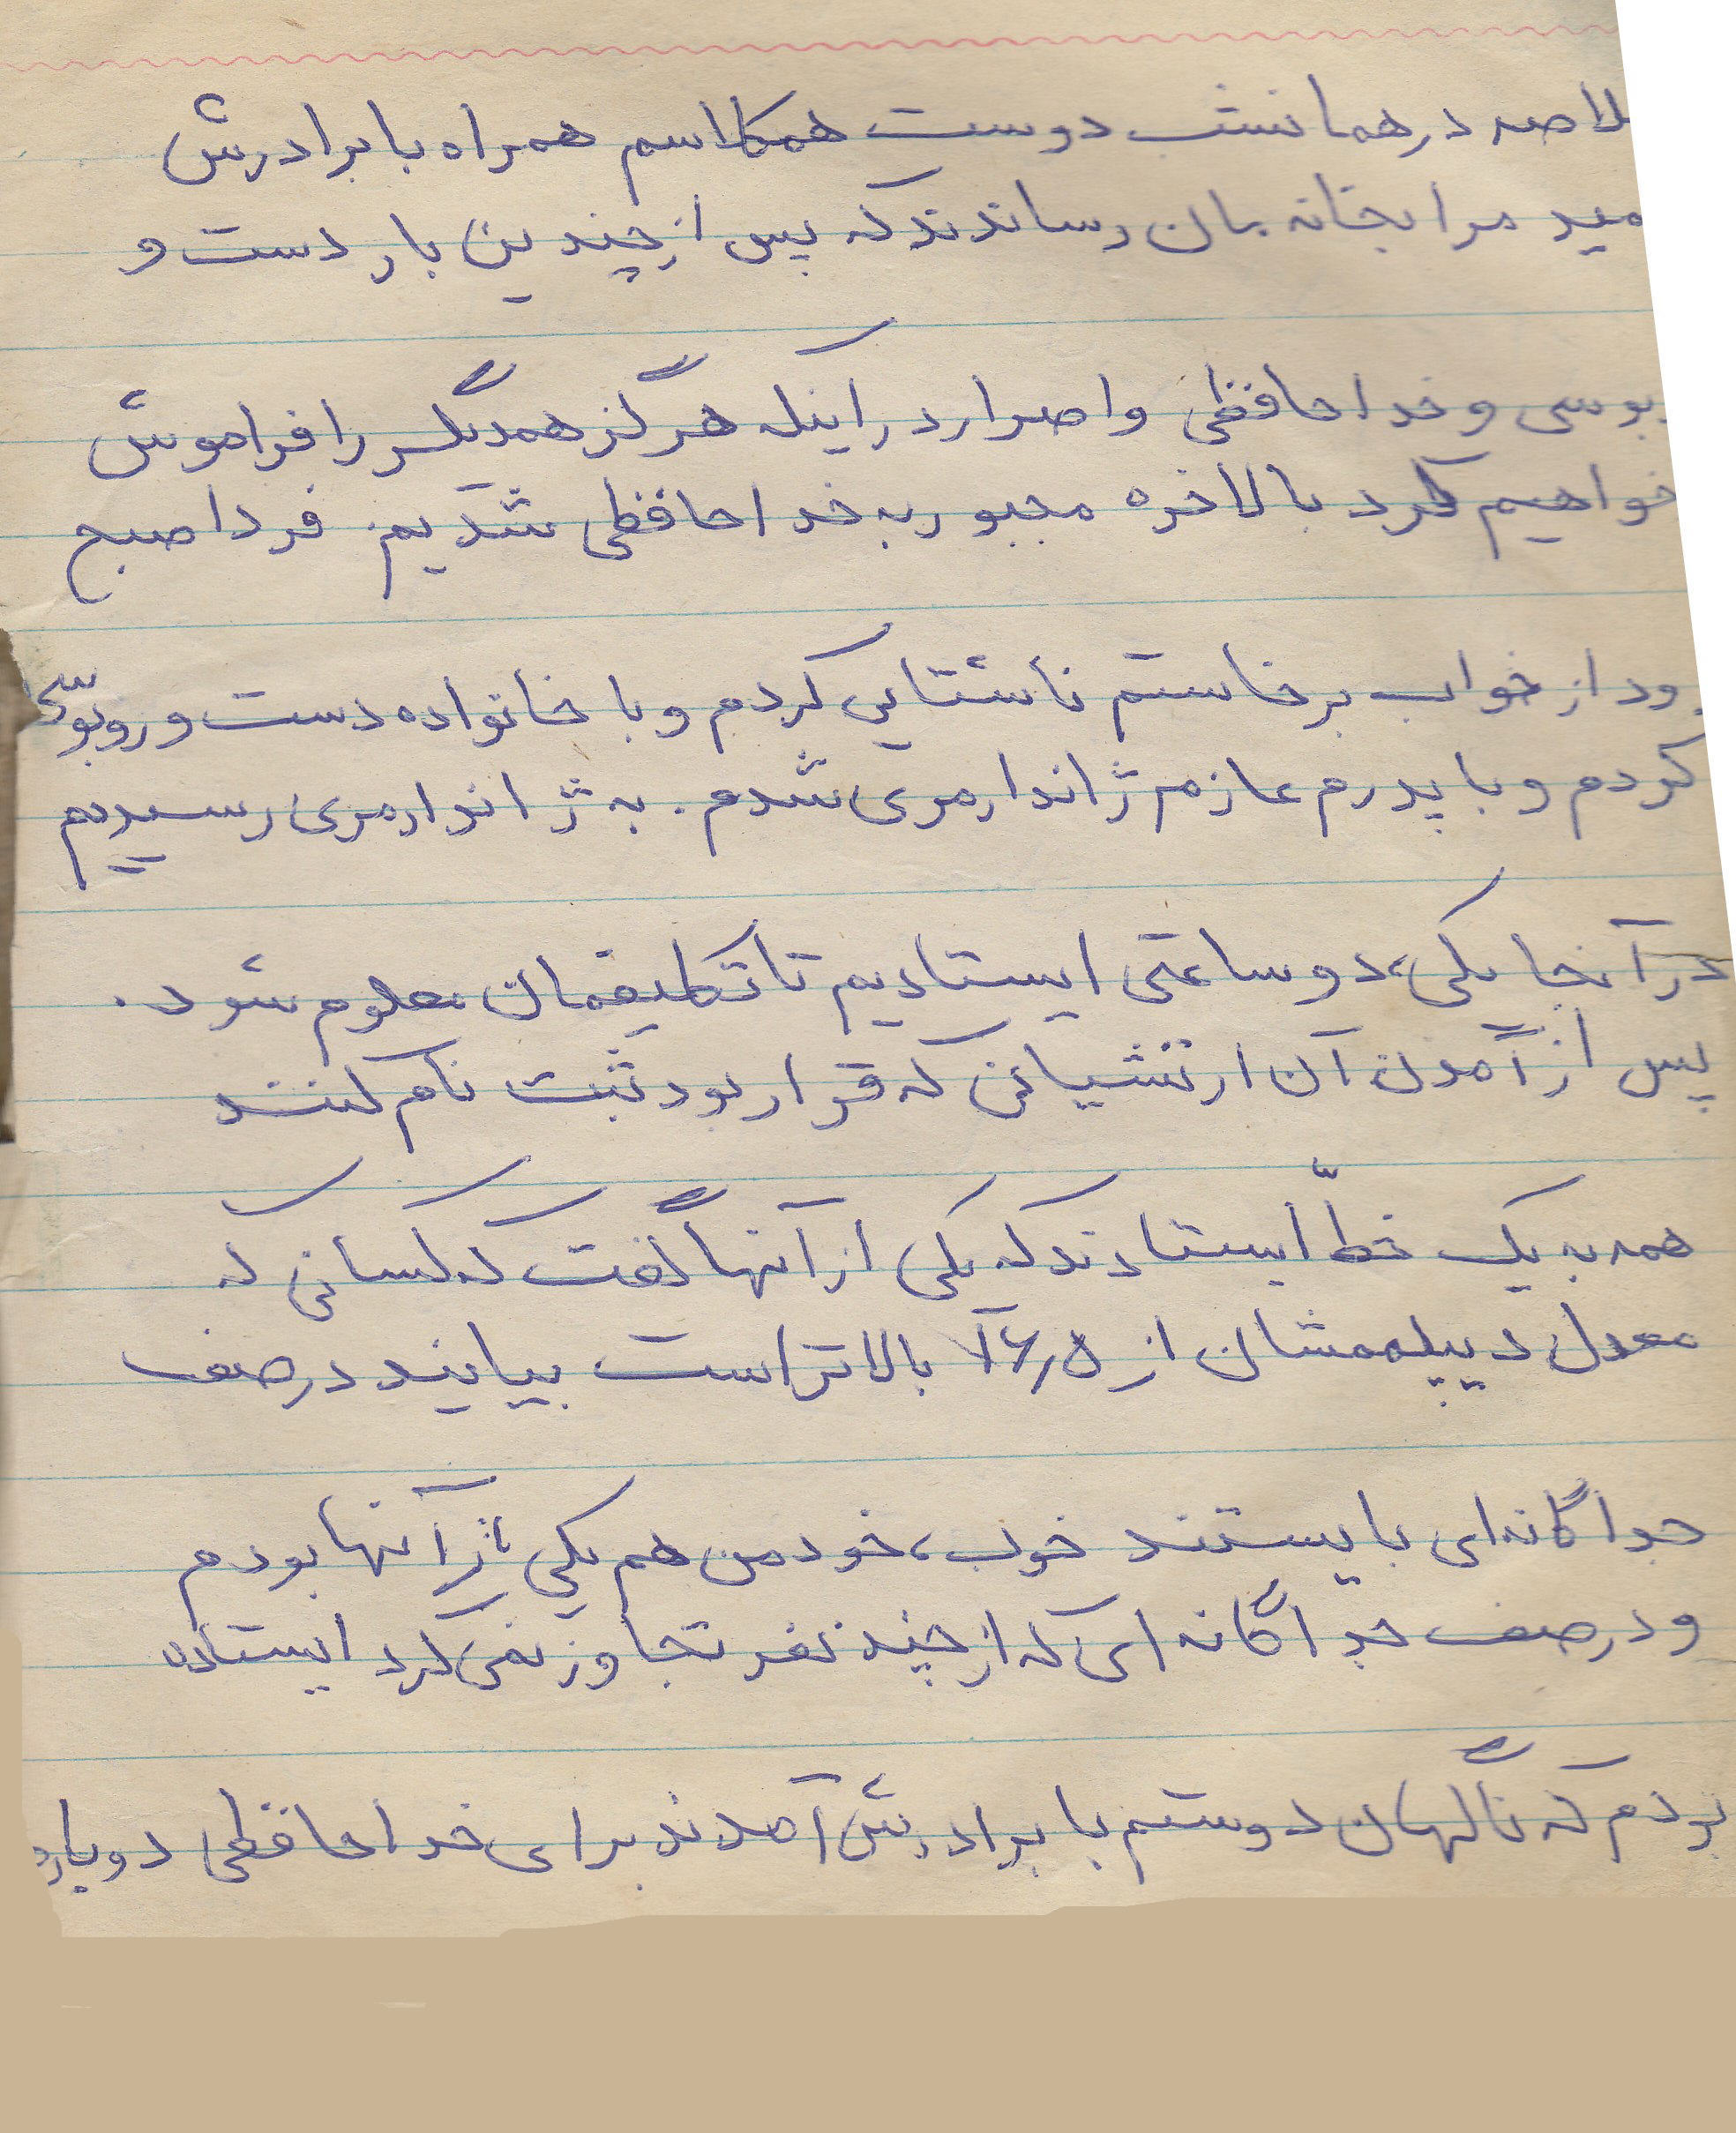 لاصه در همانشب دوست همکلاسم همراه با برادرش
مید مرا بخانه مان رساندند که پس از چندین بار دست و
بوسی و خداحافظی و اصرار در اینکه هرگز همدیگر را فراموش
خواهیم کرد بالاخره مجبور به خداحافظی شدیم. فردا صبح
ود از خواب برخاستم ناشتایی کردم و با خانواده دست و روبوسی
کردم و با پدرم عازم ژاندارمری شدم. به ژاندارمری رسیدیم
در آنجا یکی، دو ساعتی ایستادیم تا تکلیفمان معلوم شود.
پس از آمدن آن ارتشیانی که قرار بود ثبت نام کنند
همه به یک خطّ ایستادند که یکی از آنها گفت که کسانی که
معدل دیپلمشان از ۱۶/۵ بالاتر است بیایند در صف
جداگانه‌ای بایستند خوب، خود من هم یکی از آنها بودم
و در صف جداگانه ای که از چند نفر تجاوز نمی کرد ایستاده
بودم که ناگهان دوستم با برادرش آمدند برای خداحافظی دوباره